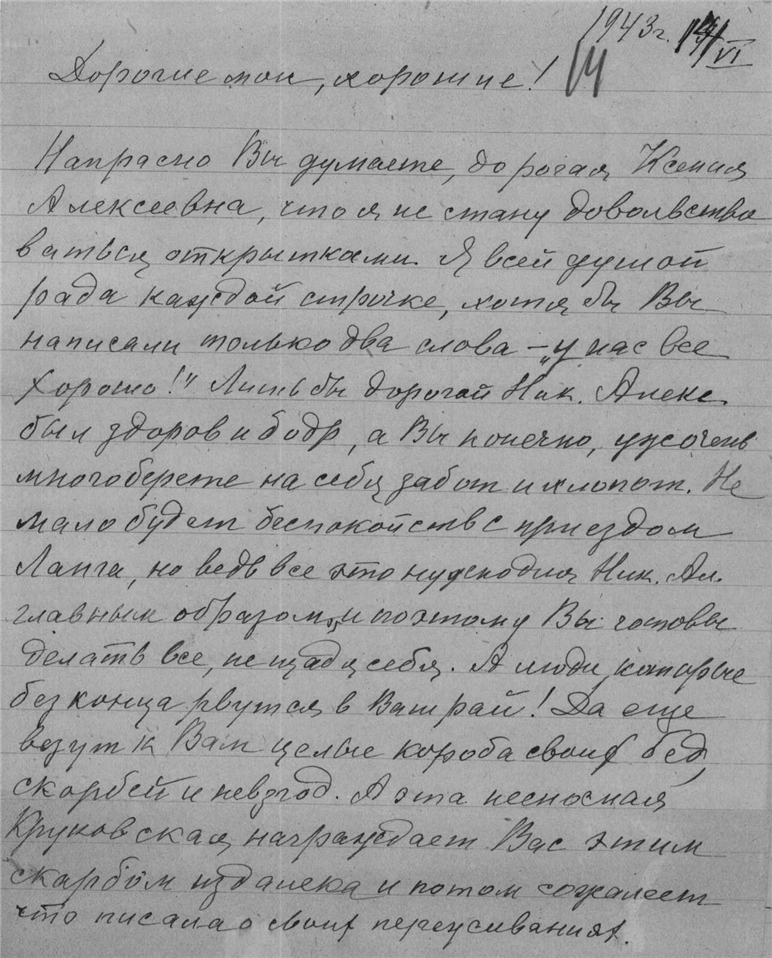 1943г. 14/VI
14
Дорогие мои, хорошие!
Напрасно Вы думаете, дорогая Ксения
Алексеевна, что я не стану довольство
ваться открытками. Я всей душой
рада каждой строчке, хотя бы Вы
написали только два слова – „у нас все
хорошо!" Лишь бы дорогой Ник. Алекс.
был здоров и бодр, а Вы конечно, уж очень
много берете на себя забот и хлопот. Не
мало будет беспокойств с приездом
Ланга, но ведь все это нужно для Ник. Ал.
главным образом, и поэтому Вы готовы
делать все, не щадя себя. А люди, которые
без конца рвутся в Ваш рай! Да еще
везут к Вам целые короба своих бед,
скорбей и невзгод. А эта несносная
Круковская, награждает Вас этим
скарбом издалека и потом сожалеет
что писала о своих переживаниях.